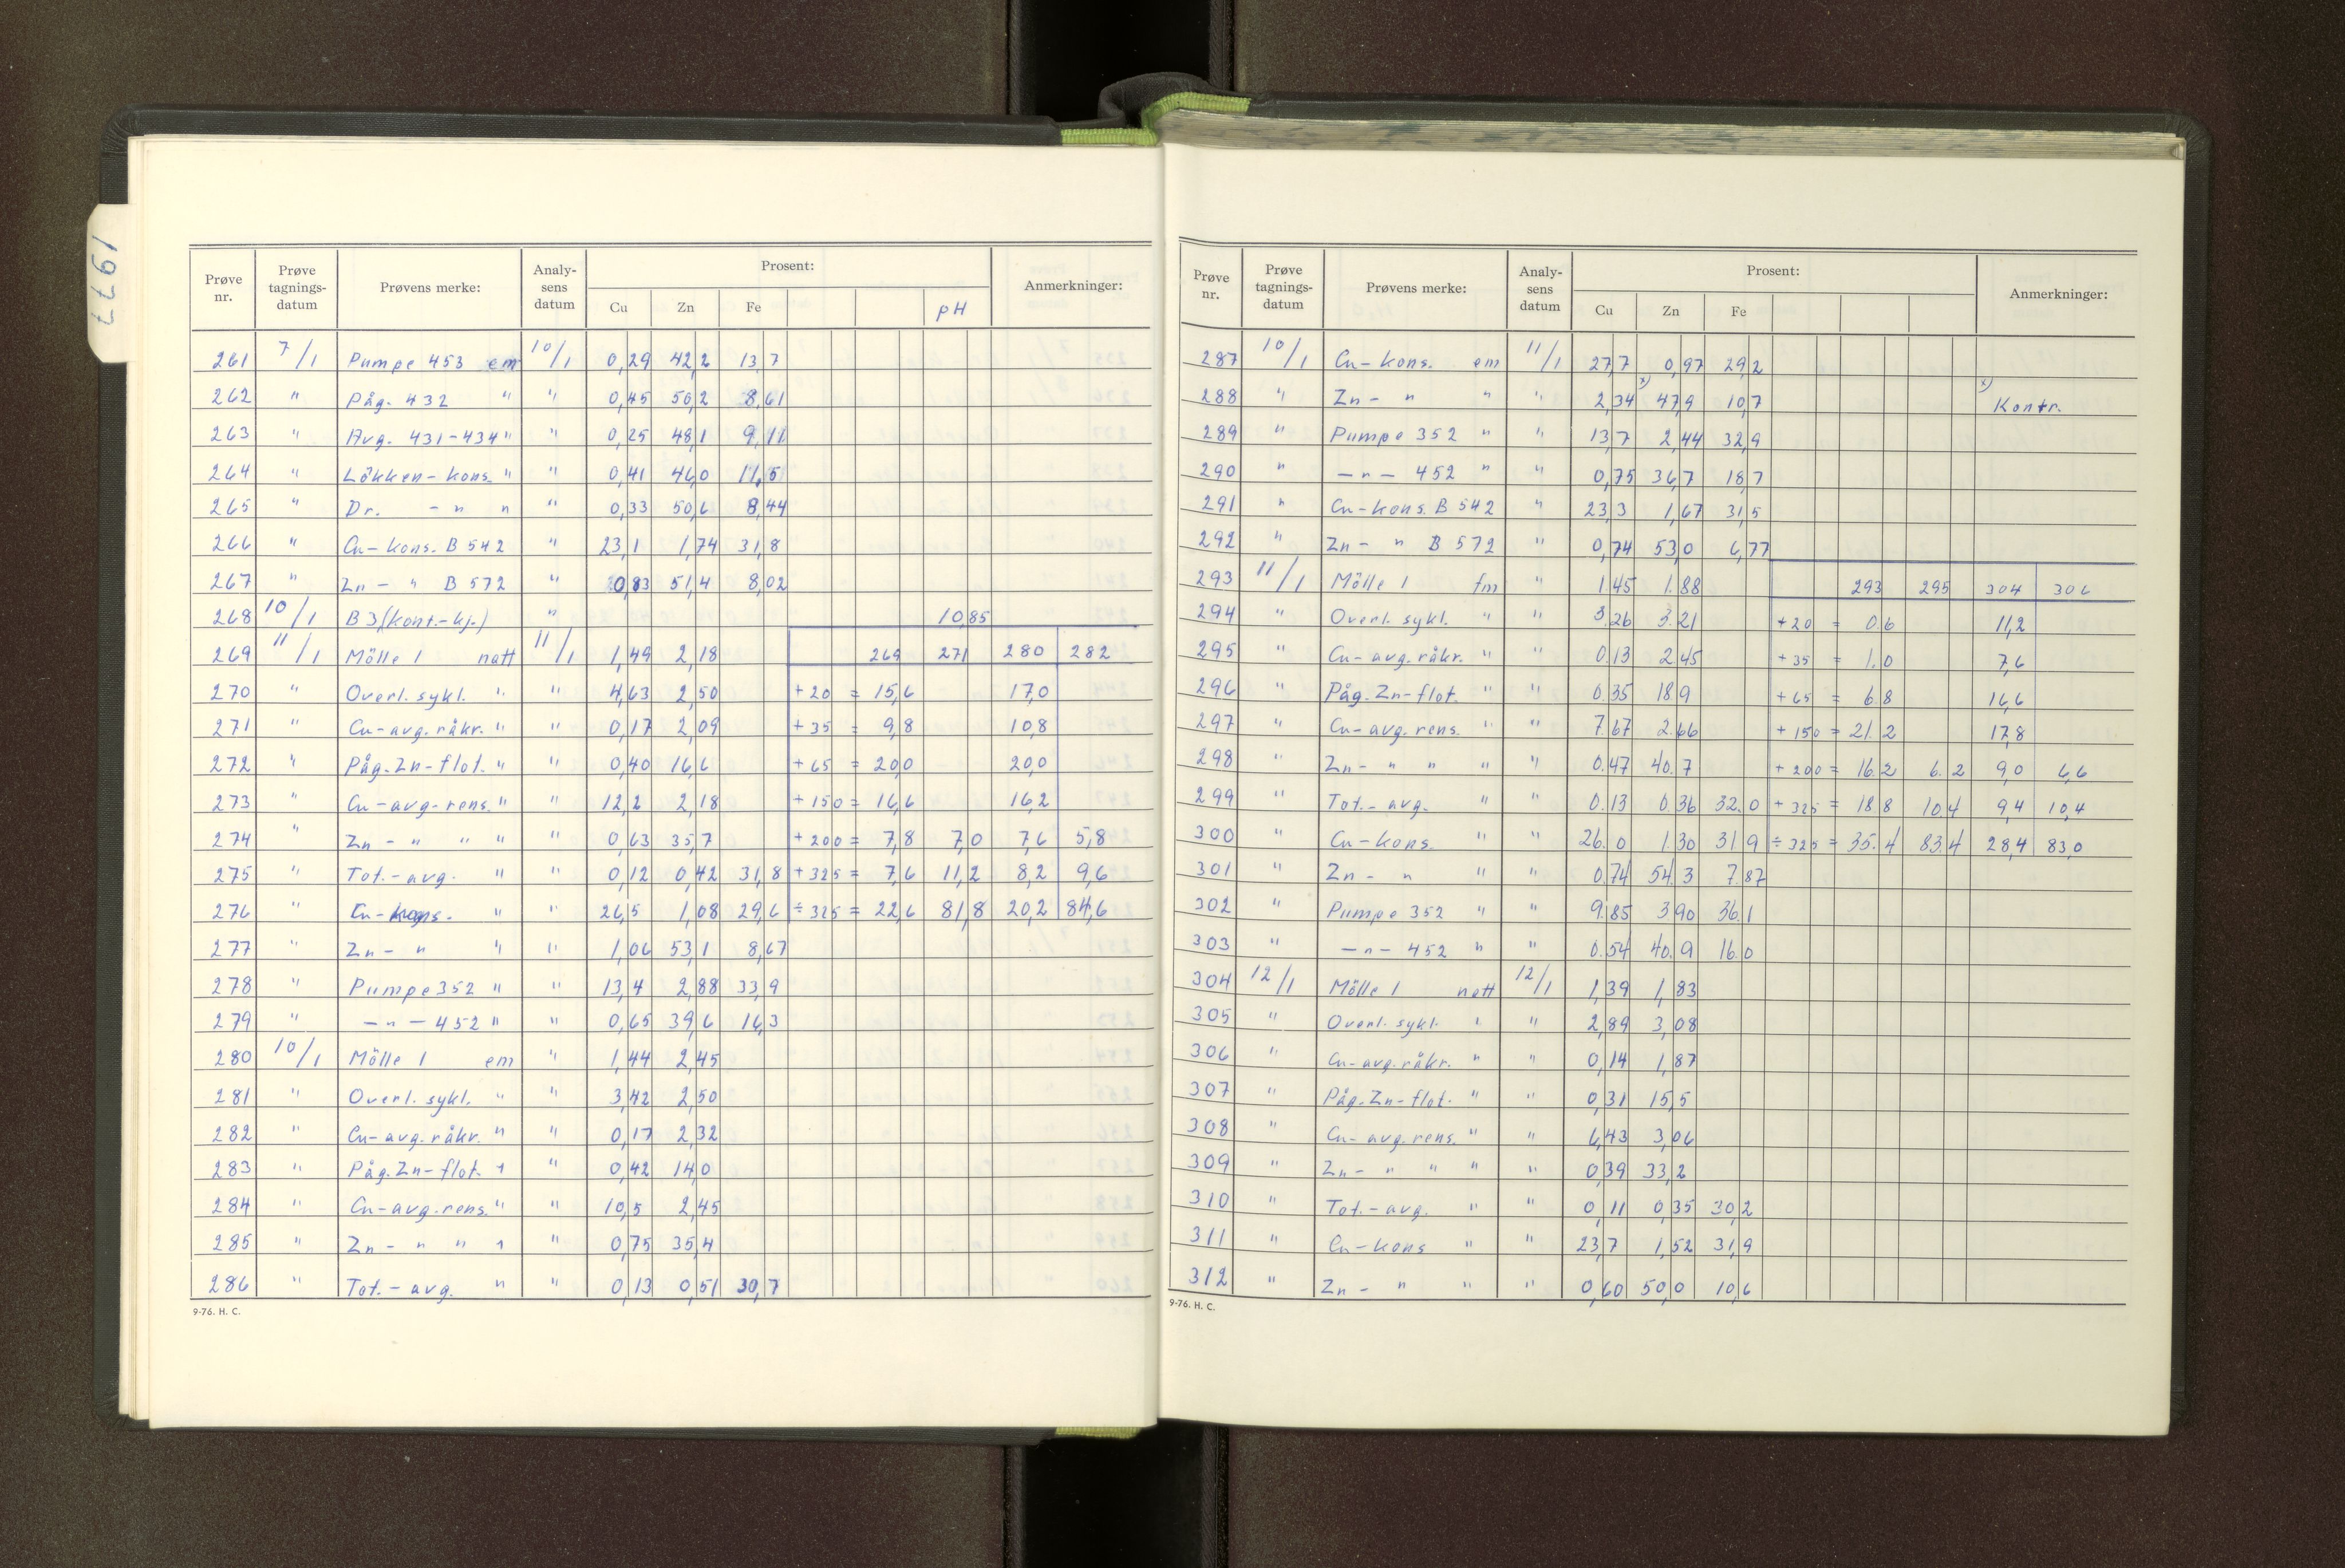 1977
Prøve nr. Prøve tagnings- datum Prøvens merke: Analy- sens datum Prosent: Anmerkninger:
Cu Zn Fe pH
261 7/1 Pumpe 453 em 10/1 0,29 42,2 13,7
262 " Påg. 432 " " 0,45 50,2 8,61
263 " Avg. 431-434 " " 0,25 48,1 9,11
264 " Lökken-kons. " " 0,41 46,0 11,5
265 " Dr. - " " " 0,33 50,6 8,44
266 " Cu-kons. B 542 " 23,1 1,74 31,8
267 " Zn- " B 572 " 0,83 51,4 8,02
268 10/1 B3 (kont.-kj.) " 10,85
269 11/1 Mölle 1 natt 11/1 1,49 2,18 269 271 280 282
270 " Overl. sykl. " " 4,63 2,50 +20 = 15,6 17,0
271 " Cu-avg. råkr. " " 0,17 2,09 +35 = 9,8 10,8
272 " Påg. Zn-flot. " " 0,40 16,6 +65 = 20,0 20,0
273 " Cu-avg-rens. " " 12,2 2,18 +150 = 16,6 16,2
274 " Zn- " " " " 0,63 35,7 +200 = 7,8 7,0 7,6 5,8
275 " Tot.-avg. " " 0,12 0,42 31,8 +325 = 7,6 11,2 8,2 9,6
276 " Cu-kons. " " 26,5 1,08 29,6 ÷325 = 22,6 81,8 20,2 84,6
277 " Zn- " " " 1,06 53,1 8,67
278 " Pumpe 352 " " 13,4 2,88 33,9
279 " -"- 452 " " 0,65 39,6 16,3
280 10/1 Mölle 1 em " 1,44 2,45
281 " Overl. sykl. " " 3,42 2,50
282 " Cu-avg. råkr. " " 0,17 2,32
283 " Påg. Zn-flot. " " 0,42 14,0
284 " Cu-avg. rens. " " 10,5 2,45
285 " Zn- " " " " 0,75 35,4
286 " Tot.-avg. " " 0,13 0,51 30,7
9-76. H. C.
Prøve nr. Prøve tagnings- datum Prøvens merke: Analy- sens datum Prosent: Anmerkninger:
Cu Zn Fe
287 10/1 Cu-kons. em 11/1 27,7 0,97 29,2
288 " Zn- " " " 2,34 x) 47,9 10,7 x) Kontr.
289 " Pumpe 352 " " 13,7 2,44 32,9
290 " -"- 452 " " 0,75 36,7 18,7
291 " Cu-kons. B 542 " 23,3 1,67 31,5
292 " Zn- " B 572 " 0,74 53,0 6,77
293 11/1 Mölle 1 fm " 1.45 1.88 293 295 304 306
294 " Overl. sykl. " " 3.26 3.21 +20 = 0.6 11,2
295 " Cu-avg. råkr. " " 0.13 2.45 +35 = 1.0 7,6
296 " Påg. Zn-flot. " " 0.35 18.9 +65 = 6.8 16,6
297 " Cu-avg. rens. " " 7.67 2.66 +150 = 21.2 17,8
298 " Zn- " " " " 0.47 40.7 +200 = 16.2 6.2 9,0 6,6
299 " Tot.-avg. " " 0.13 0.36 32.0 +325 = 18.8 10.4 9,4 10,4
300 " Cu-kons. " " 26.0 1.30 31.9 ÷325 = 35.4 83.4 28,4 83,0
301 " Zn- " " " 0.74 54.3 7.87
302 " Pumpe 352 " " 9.85 3.90 36.1
303 " -"- 452 " " 0.54 40.9 16.0
304 12/1 Mölle 1 natt 12/1 1,39 1,83
305 " Overl. sykl. " " 2,89 3,08
306 " Cu-avg. råkr. " " 0,14 1,87
307 " Påg. Zn-flot. " " 0,31 15,5
308 " Cu-avg. rens. " " 6,43 3,06
309 " Zn- " " " " 0,39 33,2
310 " Tot.-avg. " " 0,11 0,35 30,2
311 " Cu-kons " " 23,7 1,52 31,9
312 " Zn- " " " 0,60 50,0 10,6
9-76. H. C.